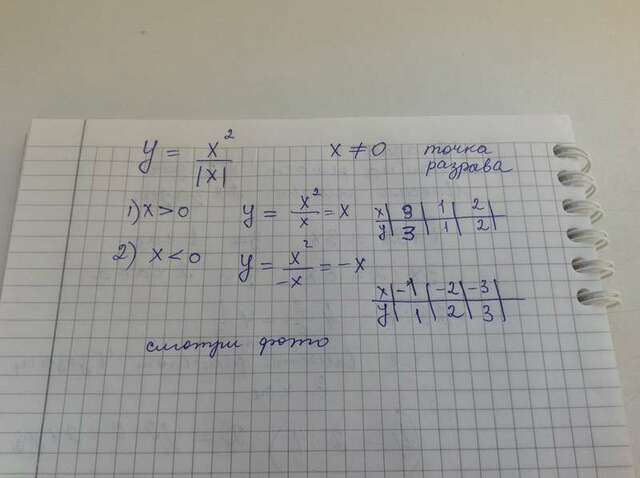 y = x²/|x| x ≠ 0 точка
разрава
1) x > 0 y = x²/x = x x | 3 | 1 | 2
y | 3 | 1 | 2
2) x < 0 y = x²/-x = -x
x | -1 | -2 | -3
y | 1 | 2 | 3
смотри фото